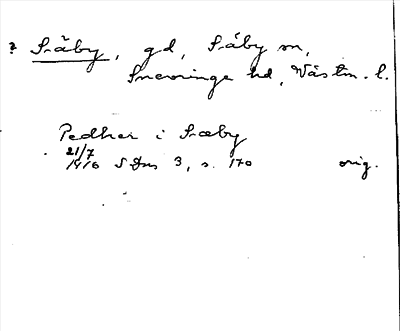 ? Säby, gd, Säby sn,
Snevringe hd, Västm. l.
Pedher i Sæby
21/7
1416 SDns 3, s. 170 orig.